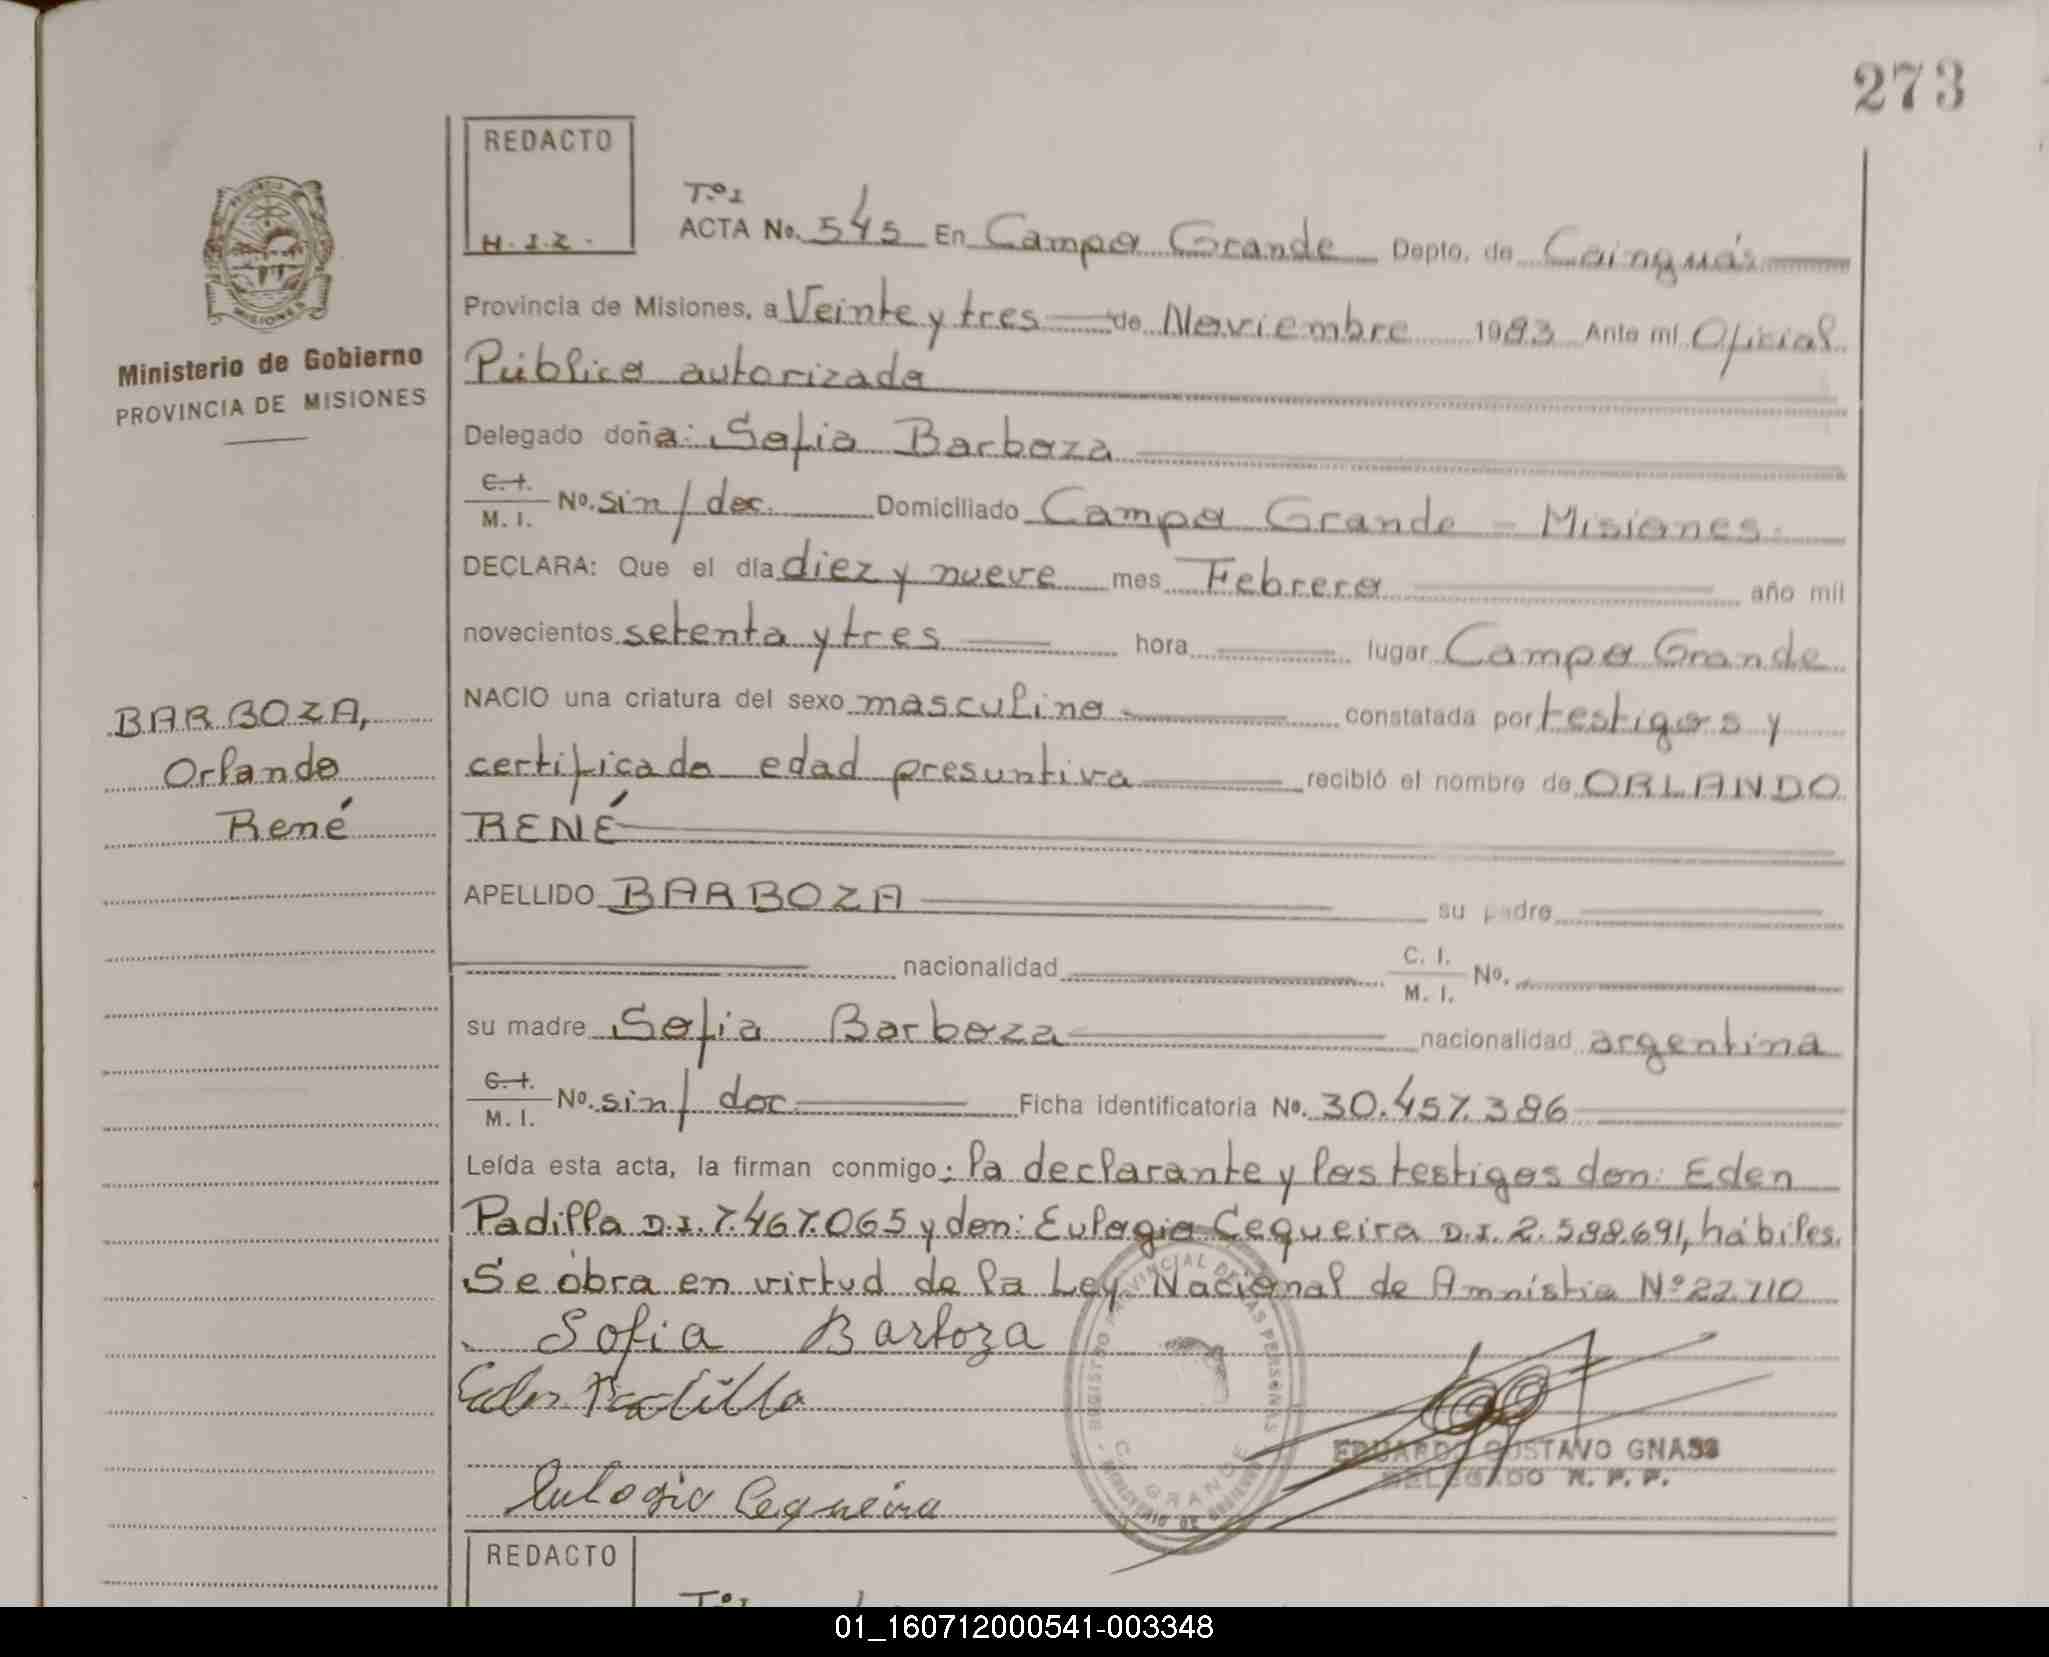 273
REDACTO
H.I.Z.
T.º1
ACTA No. 545 En Campo Grande Depto. de Cainguás
Provincia de Misiones, a Veinte y tres de Noviembre 1983 Ante mí Oficial
Público autorizado
Delegado doña: Sofia Barboza
C.I.
M.I. No. sin/doc. Domiciliado Campo Grande - Misiones.
DECLARA: Que el día diez y nueve mes Febrero año mil
novecientos setenta y tres hora lugar Campo Grande
NACIO una criatura del sexo masculino constatada por testigos y
certificado edad presuntiva recibió el nombre de ORLANDO
RENÉ
APELLIDO BARBOZA su padre
nacionalidad C. I.
M. I. No.
su madre Sofia Barboza nacionalidad argentina
C.I.
M. I. No. sin/doc Ficha identificatoria No. 30.457.386
Leída esta acta, la firman conmigo: la declarante y los testigos don: Eden
Padilla D.I. 7.467.065 y don: Eulogio Cequeira D.I. 2.588.691, hábiles.
Se obra en virtud de la Ley Nacional de Amnistia Nº 22.710
Sofia Barboza
Eden Padilla
Eulogio Cequeira
EDUARDO GUSTAVO GNASS
DELEGADO R. P. P.
REGISTRO PROVINCIAL DE LAS PERSONAS
C. GRANDE
MINISTERIO DE GOBIERNO
PROVINCIA
MISIONES
Ministerio de Gobierno
PROVINCIA DE MISIONES
BARBOZA,
Orlando
René
REDACTO
T.º1
01_160712000541-003348